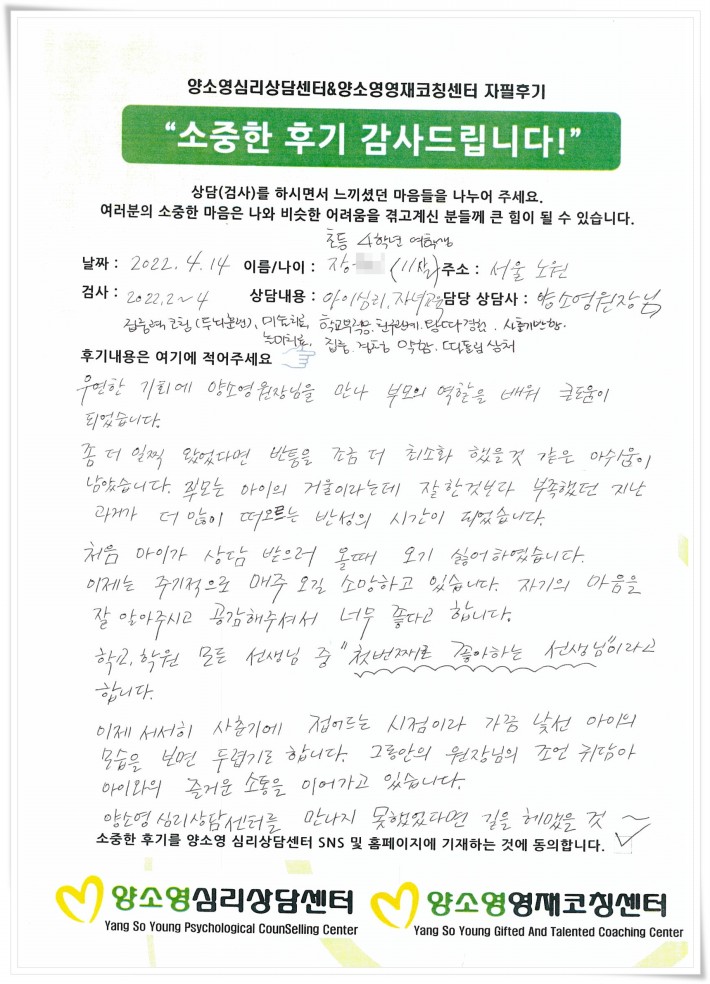 양소영심리상담센터&양소영영재코칭센터 자필후기
“소중한 후기 감사드립니다!”
상담(검사)를 하시면서 느끼셨던 마음들을 나누어 주세요.
여러분의 소중한 마음은 나와 비슷한 어려움을 겪고계신 분들께 큰 힘이 될 수 있습니다.
초등 4학년 여학생
날짜 : 2022. 4. 14 이름/나이 : 장 (11살) 주소 : 서울 노원
검사 : 2022. 2~4 상담내용 : 아이심리. 자녀교육 담당 상담사 : 양소영원장님
집중력 코칭 (두뇌훈련), 미술치료, 학교부적응, 왕따경험. 사춘기반항.
놀이치료, 집중. 경청 약함. 따돌림 상처
후기내용은 여기에 적어주세요
우연한 기회에 양소영원장님을 만나 부모의 역할을 배워 큰도움이
되었습니다.
좀 더 일찍 왔었다면 반퉁을 조금 더 최소화 했을것 같은 아쉬움이
남았습니다. 부모는 아이의 거울이라는데 잘한것보다 부족했던 지난
과거가 더 많이 떠오르는 반성의 시간이 되었습니다.
처음 아이가 상담 받으러 올때 오기 싫어하였습니다.
이제는 주기적으로 매주 오길 소망하고 있습니다. 자기의 마음을
잘 알아주시고 공감해주셔서 너무 좋다고 합니다.
학교, 학원 모든 선생님 중 "첫번째로 좋아하는 선생님"이라고
합니다.
이제 서서히 사춘기에 접어드는 시점이라 가끔 낯선 아이의
모습을 보면 두렵기도 합니다. 그동안의 원장님의 조언 귀담아
아이와의 즐거운 소통을 이어가고 있습니다.
양소영 심리상담센터를 만나지 못했었다면 길을 헤맸을 것 ~
소중한 후기를 양소영 심리상담센터 SNS 및 홈페이지에 기재하는 것에 동의합니다.
양소영심리상담센터 양소영영재코칭센터
Yang So Young Psychological CounSelling Center Yang So Young Gifted And Talented Coaching Center